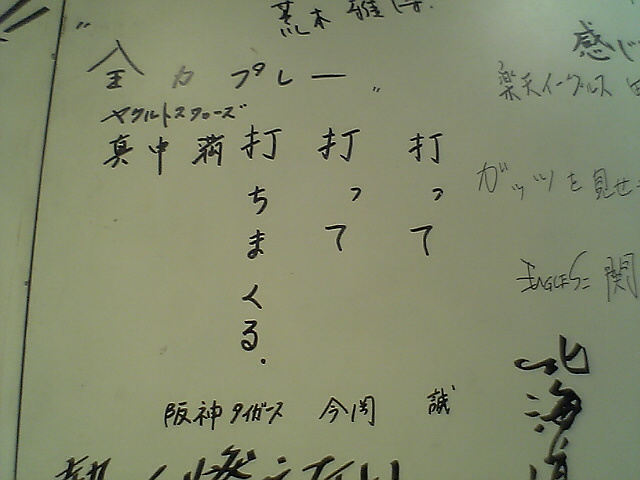 荒木 雅博
"全力プレー"
ヤクルトスワローズ
真中 満
打って
打って
打ちまくる.
阪神タイガース 今岡 誠
感じ
楽天イーグルス
ガッツを見せ
EAGLES 関
北海道